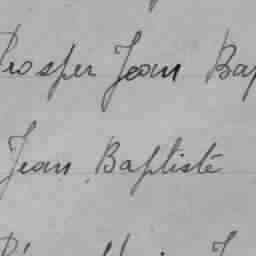 Prosper Jean Bap
Jean Baptiste